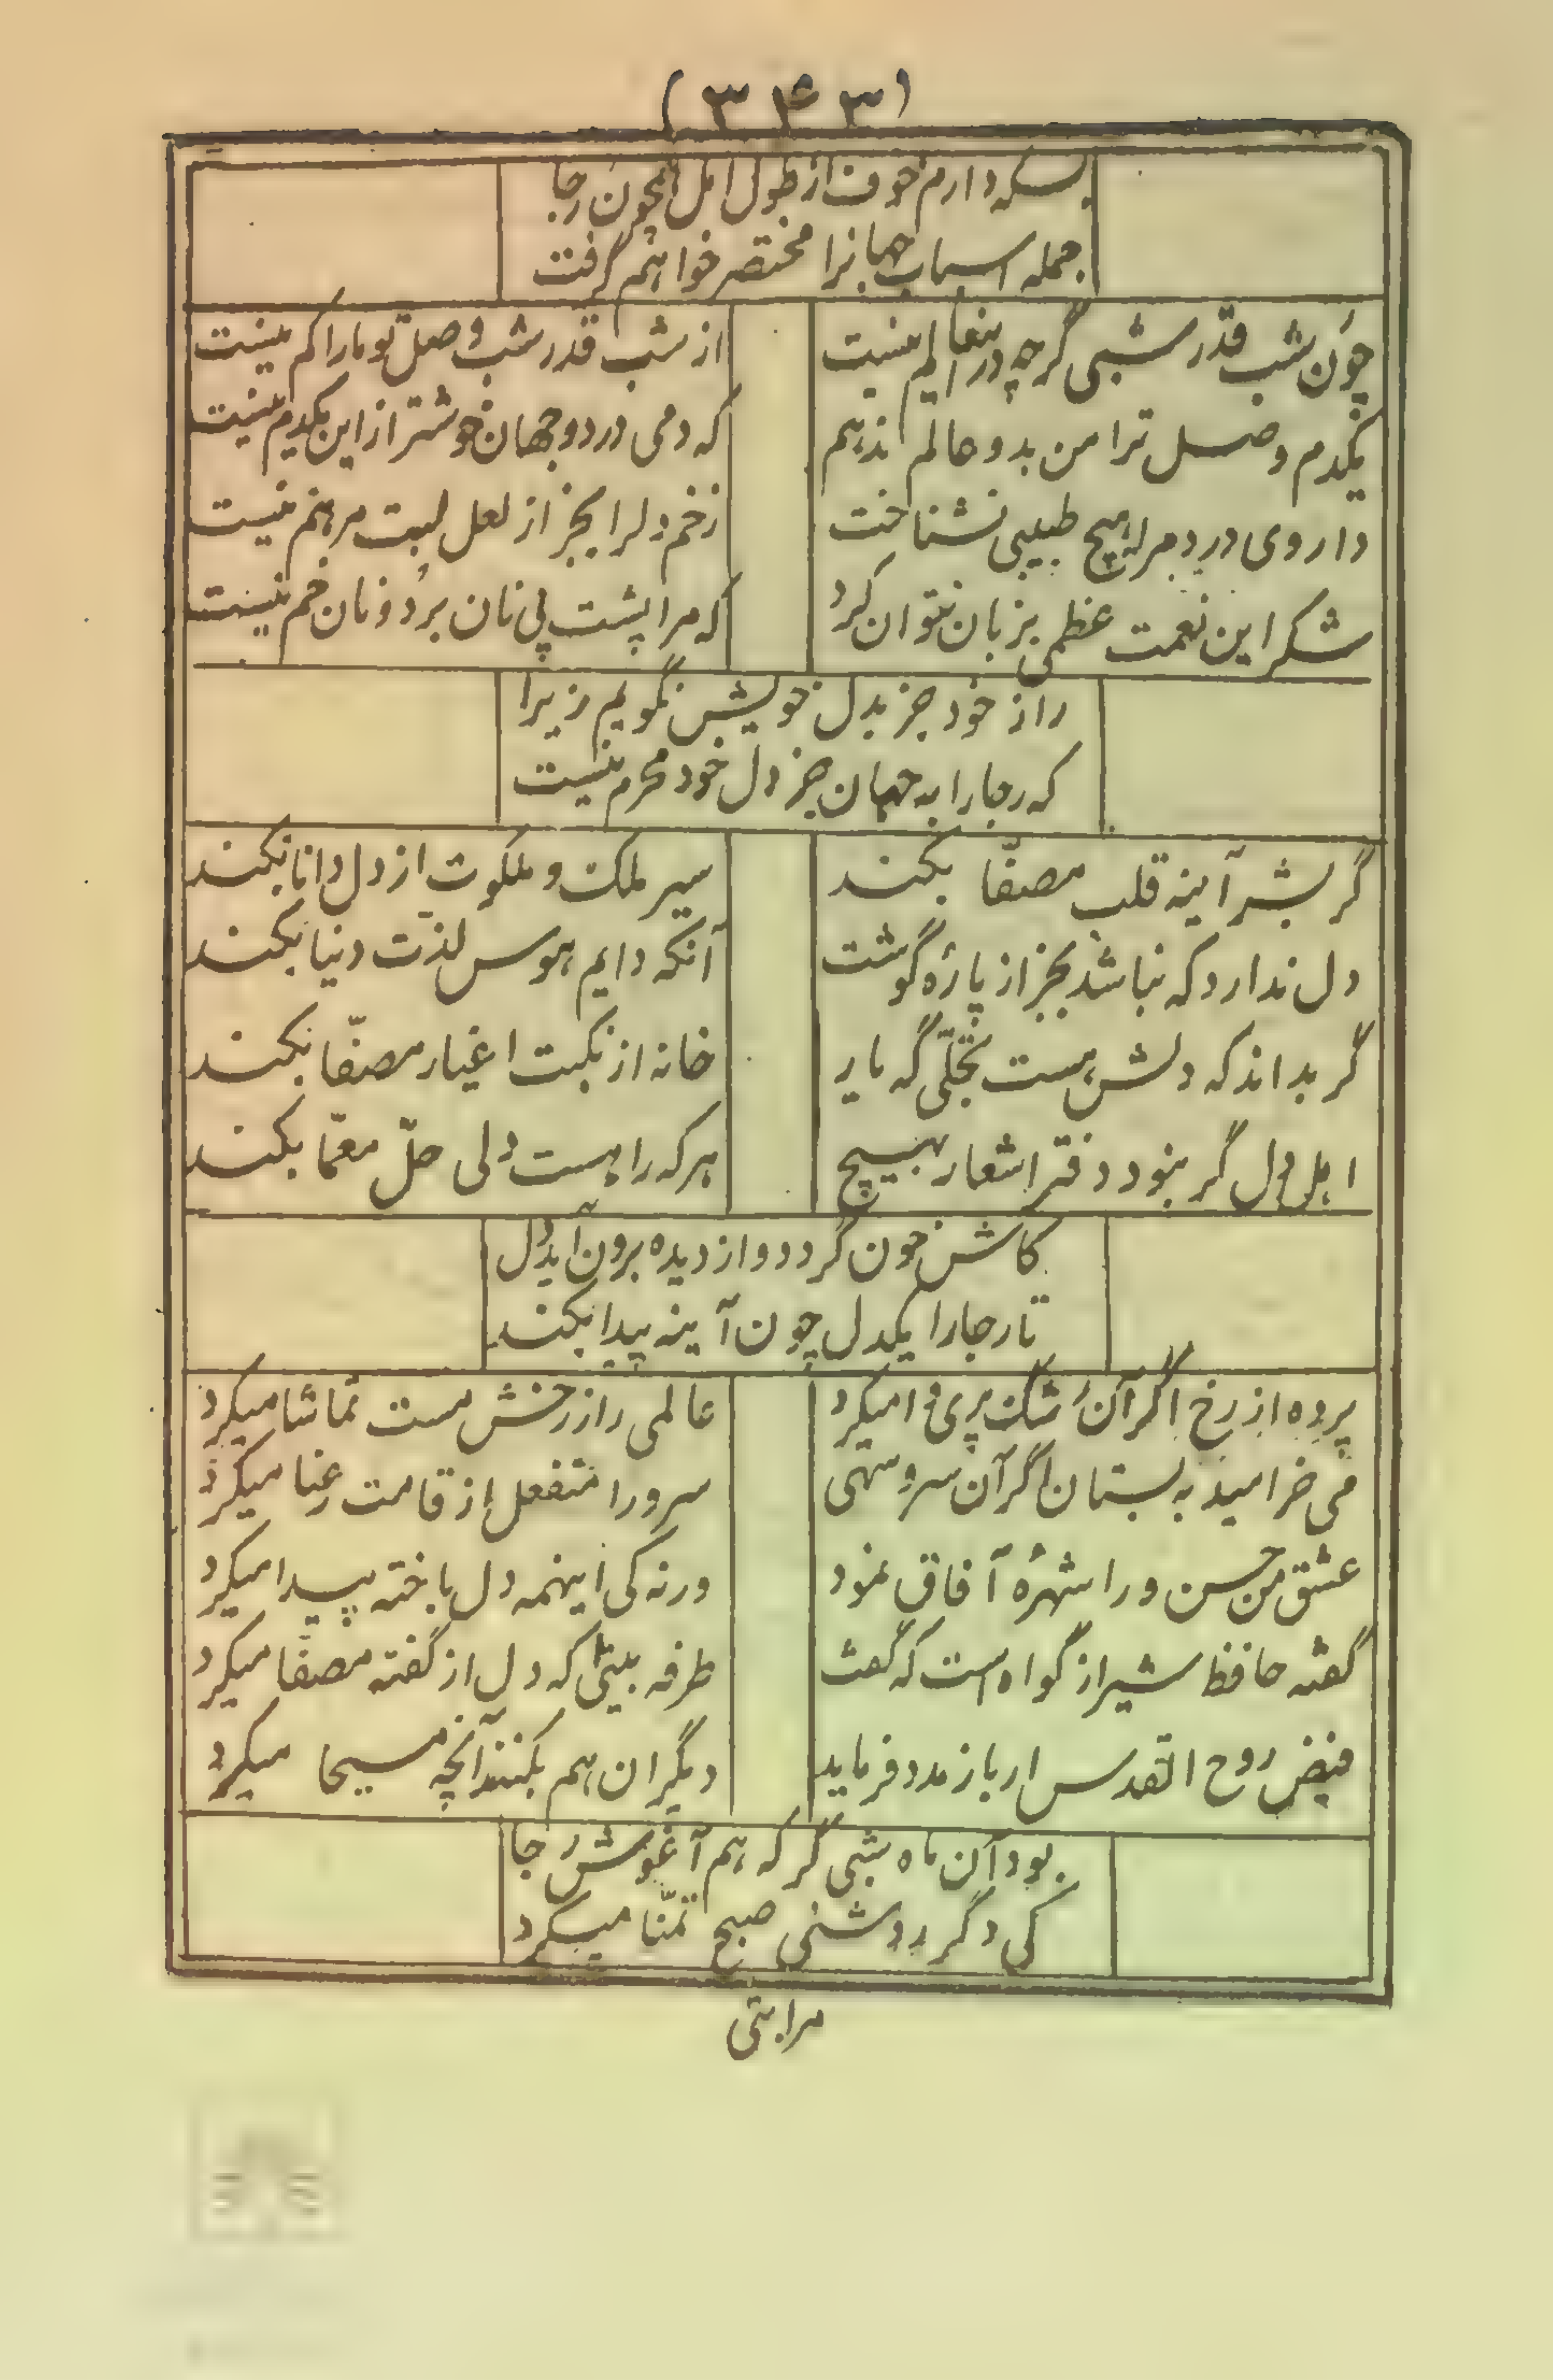 (۳۴۳)
بسکه دارم خوف از طول امل همچون رجا
جمله اسباب جهانرا مختصر خواهم گرفت
چون شب قدر شبی گرچه در ینعالم نیست
از شب قدر شب وصل تو مارا کم نیست
یکدم وصل ترا من بدو عالم ندهم
که دمی در دو جهان خوشتر از این یکدم نیست
داروی درد مرا هیچ طبیبی نشناخت
زخم دلرا بجز از لعل لبت مرهم نیست
شکر این نعمت عظمی بزبان نتوان کرد
که مرا پشت پی نان بر دونان خم نیست
راز خود جز بدل خویش نگویم زیرا
که رجارا به جهان جز دل خود محرم نیست
گر بشر آینه قلب مصفّا بکند
سیر ملک و ملکوت از دل دانا بکند
دل ندارد که نباشد بجز از پارهٔ گوشت
آنکه دایم هوس لذّت دنیا بکند
گر بداند که دلش هست تجلّی گه یار
خانه از نکبت اغیار مصفّا بکند
اهل دل گر بنود دفتر اشعار بهیچ
هرکه را هست دلی حلّ معمّا بکند
کاش خون گردد و از دیده برون آید دل
تا رجارا یکدل چون آینه پیدا بکند
پرده از رخ اگر آن رشک پری وا میکرد
عالمی را ز رخش مست تماشا میکرد
می خرامید به بستان اگر آن سرو سهی
سرو را منفعل از قامت رعنا میکرد
عشق من حسن ورا شهرهٔ آفاق نمود
ورنه کی اینهمه دل باخته پیدا میکرد
گفته حافظ شیراز گواه است که گفت
طرفه بیتی که دل از گفته مصفّا میکرد
فیض روح القدس ار باز مدد فرماید
دیگران هم بکنند آنچه مسیحا میکرد
بود آن ماه شبی گر که هم آغوش رجا
کی دگر روشنی صبح تمنّا میکرد
مرا بتی